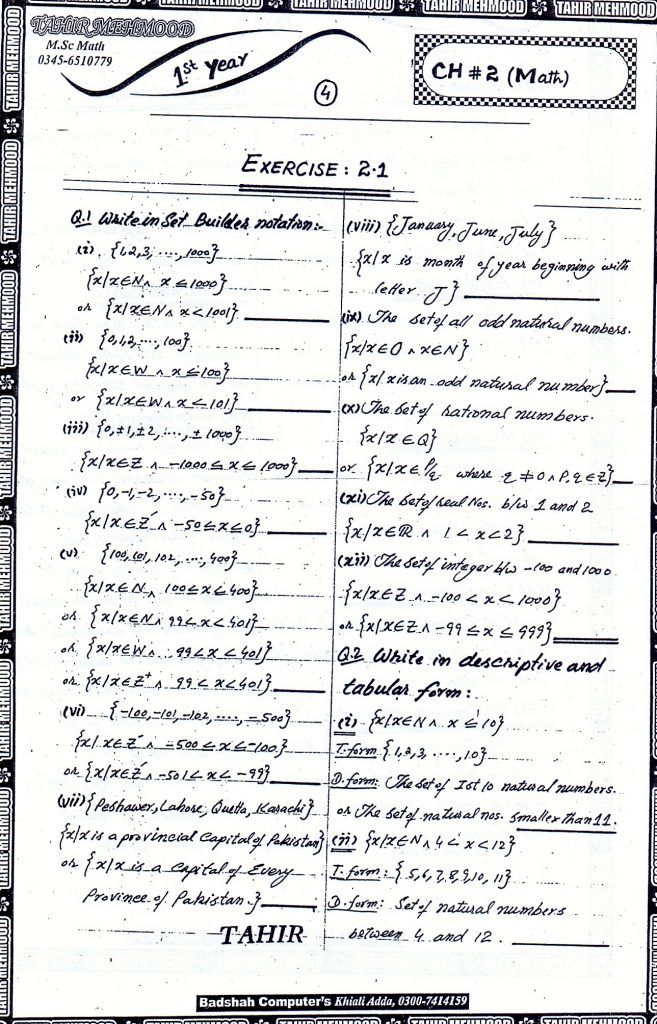 TAHIR MEHMOOD
M.Sc Math
0345-6510779
1st Year
4
CH # 2 (Math)
EXERCISE: 2.1
Q.1 Write in Set Builder notation:-
(i) {1,2,3, ...., 1000}
{x|x∈N ∧ x ≤ 1000}
or {x|x∈N ∧ x < 1001}
(ii) {0,1,2, ..., 100}
{x|x∈W ∧ x ≤ 100}
or {x|x∈W ∧ x < 101}
(iii) {0, ±1, ±2, ...., ± 1000}
{x|x∈Z ∧ -1000 ≤ x ≤ 1000}
(iv) {0, -1, -2, ...., -50}
{x|x∈Z⁻ ∧ -50 ≤ x ≤ 0}
(v) {100, 101, 102, ...., 400}
{x|x∈N ∧ 100 ≤ x ≤ 400}
or {x|x∈N ∧ 99 < x < 401}
or {x|x∈W ∧ 99 < x < 401}
or {x|x∈Z⁺ ∧ 99 < x < 401}
(vi) {-100, -101, -102, ...., -500}
{x|x∈Z⁻ ∧ -500 ≤ x ≤ -100}
or {x|x∈Z⁻ ∧ -501 < x < -99}
(vii) {Peshawer, Lahore, Quetta, Karachi}
{x|x is a provincial Capital of Pakistan}
or {x|x is a Capital of Every
Province of Pakistan.}
TAHIR
(viii) {January, June, July}
{x|x is month of year beginning with
letter J}
(ix) The set of all odd natural numbers.
{x|x∈O ∧ x∈N}
or {x|x is an odd natural number}
(x) The Set of rational numbers.
{x|x∈Q}
or {x|x∈P/q where q ≠ 0 ∧ P, q ∈ Z}
(xi) The Set of real Nos. b/w 1 and 2
{x|x∈ℝ ∧ 1 < x < 2}
(xii) The set of integer b/w -100 and 1000
{x|x∈Z ∧ -100 < x < 1000}
or {x|x∈Z ∧ -99 ≤ x ≤ 999}
Q.2 Write in descriptive and
tabular form:
(i) {x|x∈N ∧ x ≤ 10}
T.form {1,2,3, ...., 10}
D.form: The set of 1st 10 natural numbers.
or The set of natural nos. smaller than 11.
(ii) {x|x∈N ∧ 4 < x < 12}
T.form: {5,6,7,8,9,10,11}
D.form: Set of natural numbers
between 4 and 12.
Badshah Computer's Khiali Adda, 0300-7414159